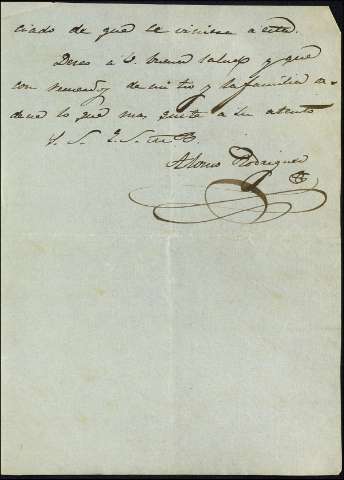 ciado de que le viniera a esta.
Deseo a V. buena salud y que
con recuerdos de mi tio y la familia or-
dene lo que mas guste a su atento
S. S. Q. S. M. B.
Alonso Rodriguez